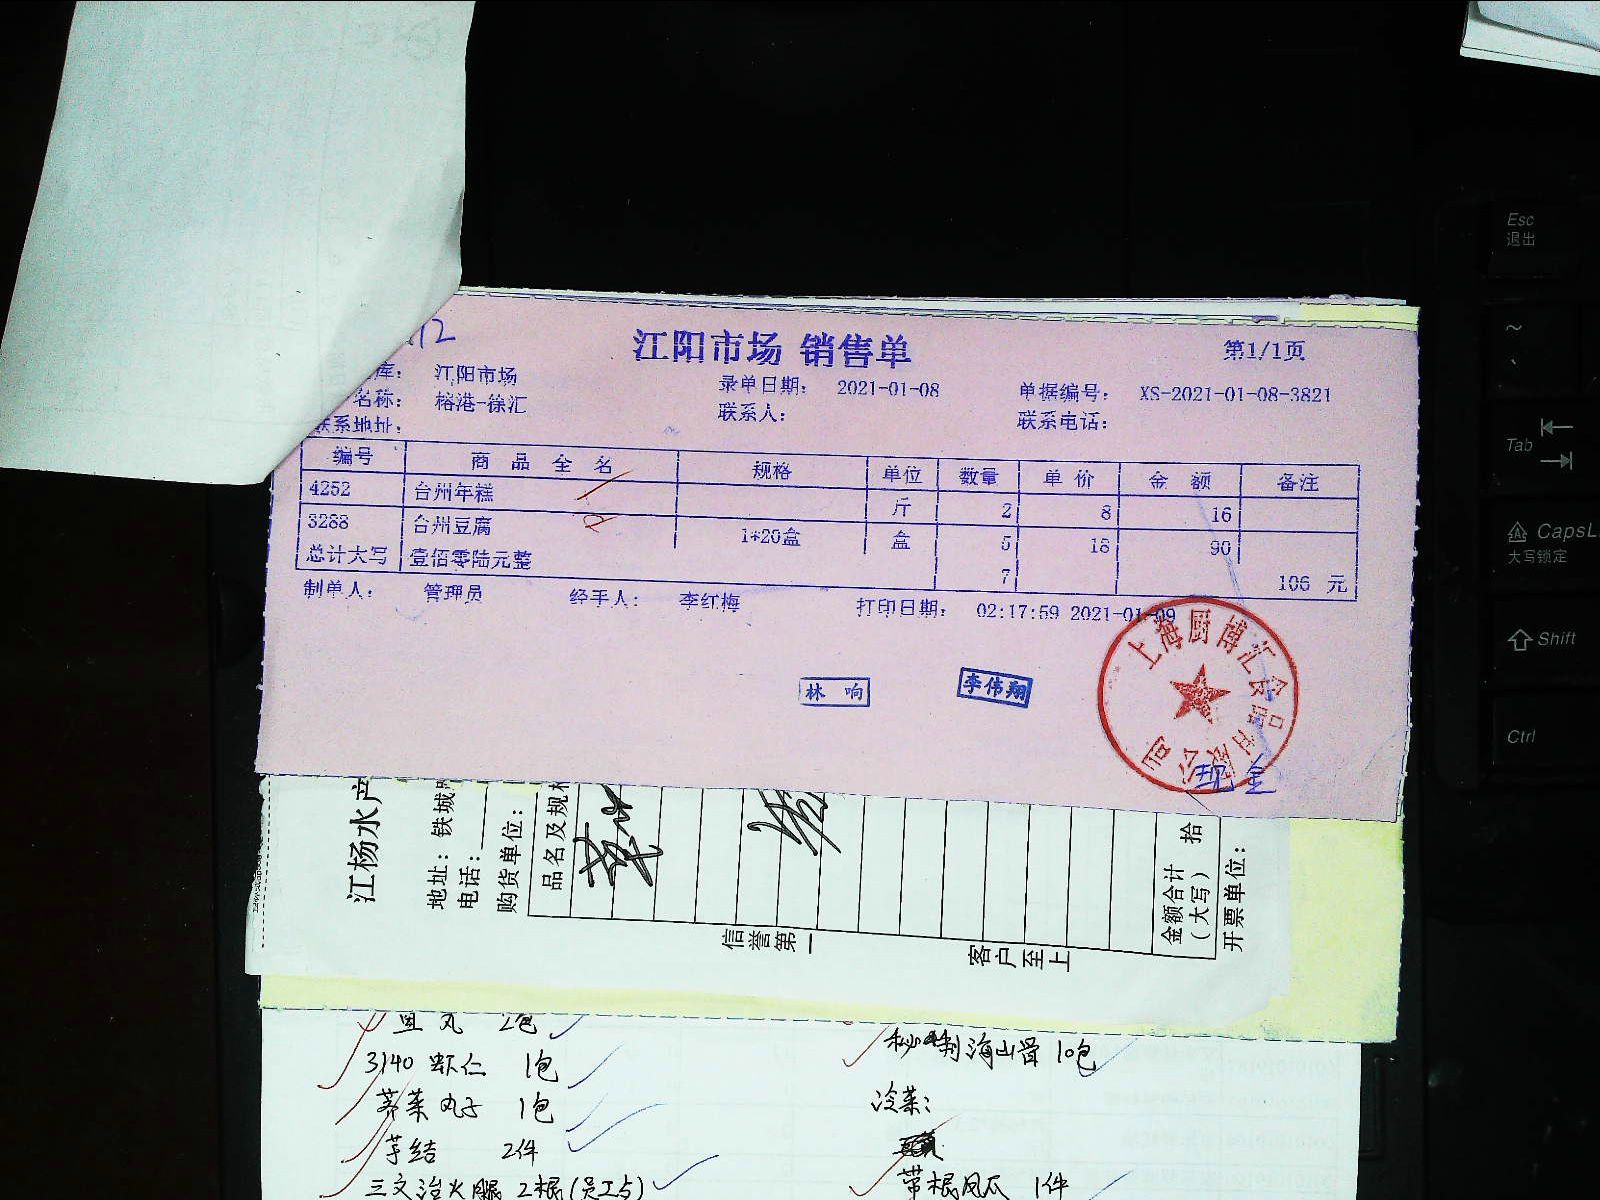 12
江阳市场 销售单
第1/1页
库: 江阳市场
录单日期: 2021-01-08
单据编号: XS-2021-01-08-3821
名称: 榕港-徐汇
联系人:
联系电话:
联系地址:
编号 商品全名 规格 单位 数量 单价 金额 备注
4252 台州年糕 斤 2 8 16
3288 台州豆腐 1*20盒 盒 5 18 90
总计大写 壹佰零陆元整 7 106 元
制单人: 管理员 经手人: 李红梅 打印日期: 02:17:59 2021-01-09
林响
李伟翔
上海厨博汇食品有限公司
现金
江杨水产
地址: 铁城
电话:
购货单位:
品名及规格
金额合计(大写) 拾
开票单位:
信誉第一
客户至上
鱼丸 2包
3140 虾仁 1包
荠菜丸子 1包
芋结 2件
三文治火腿 2根(员工占)
秘制海山骨 10包
冷菜:
带根凤爪 1件
Esc
退出
~
Tab
CapsL
大写锁定
Shift
Ctrl